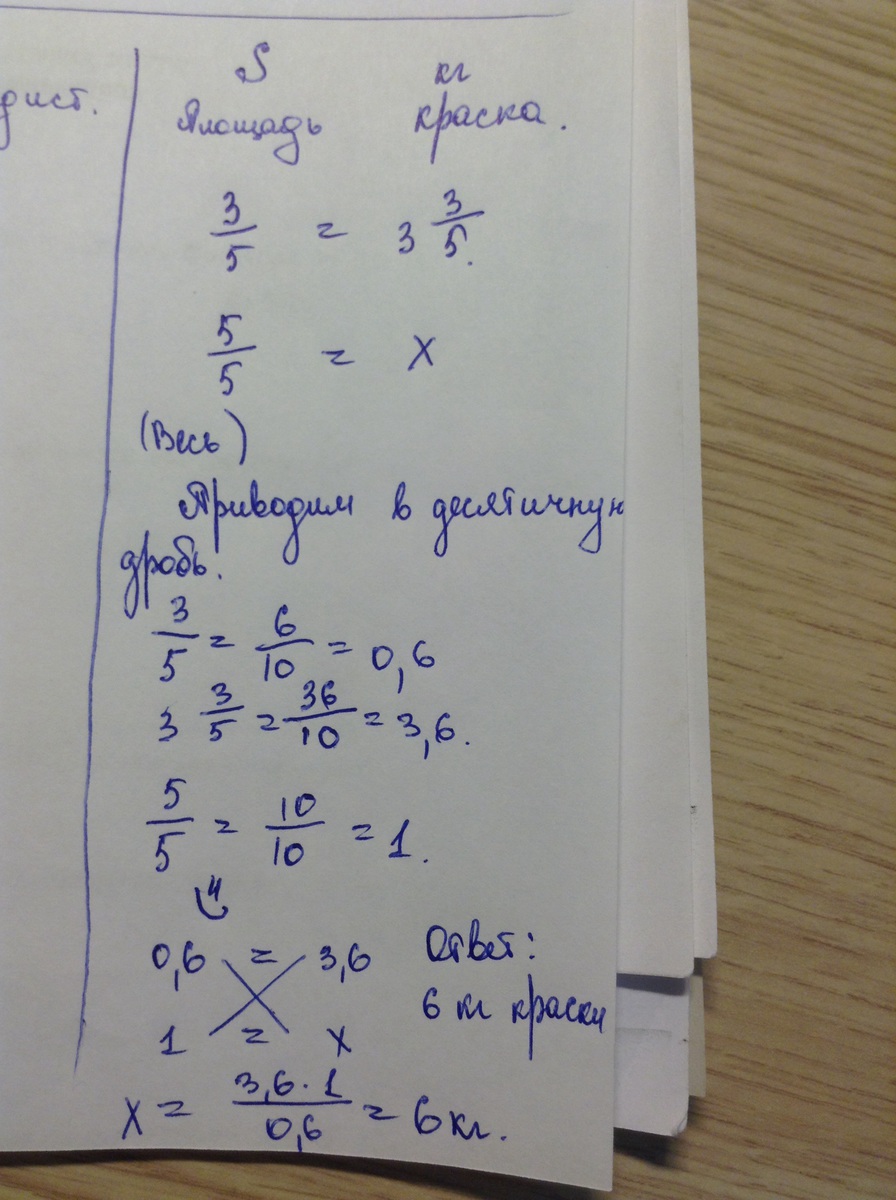 дист.
S кг
Площадь краска.
3/5 = 3 3/5.
5/5 = х
(Весь)
Приводим в десятичную
дробь.
3/5 = 6/10 = 0,6
3 3/5 = 36/10 = 3,6.
5/5 = 10/10 = 1.
0,6 = 3,6 Ответ:
1 = х 6 кг краски
х = 3,6 · 1/0,6 = 6кг.